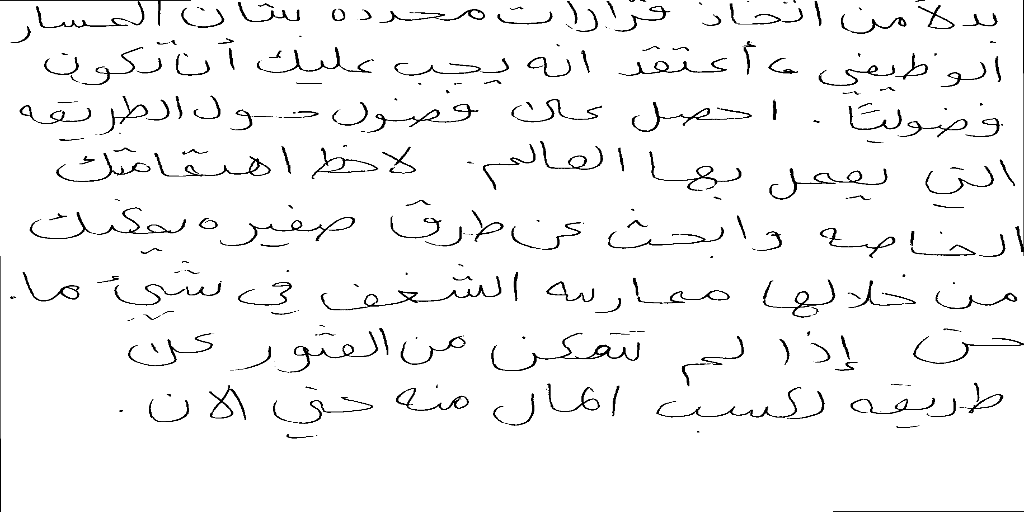 بدلا من اتخاذ قرارات محدده بشان المسار
الوظيفي ، أعتقد انه يجب عليك أن تكون
فضوليًا . احصل على فضول حول الطريقه
التي يعمل بها العالم . لاحظ اهتماماتك
الخاصه وابحث عن طرق صغيره يمكنك
من خلالها ممارسه الشغف في شيئ ما .
حتى إذا لم تتمكن من العثور على
طريقه لكسب المال منه حتي الان .